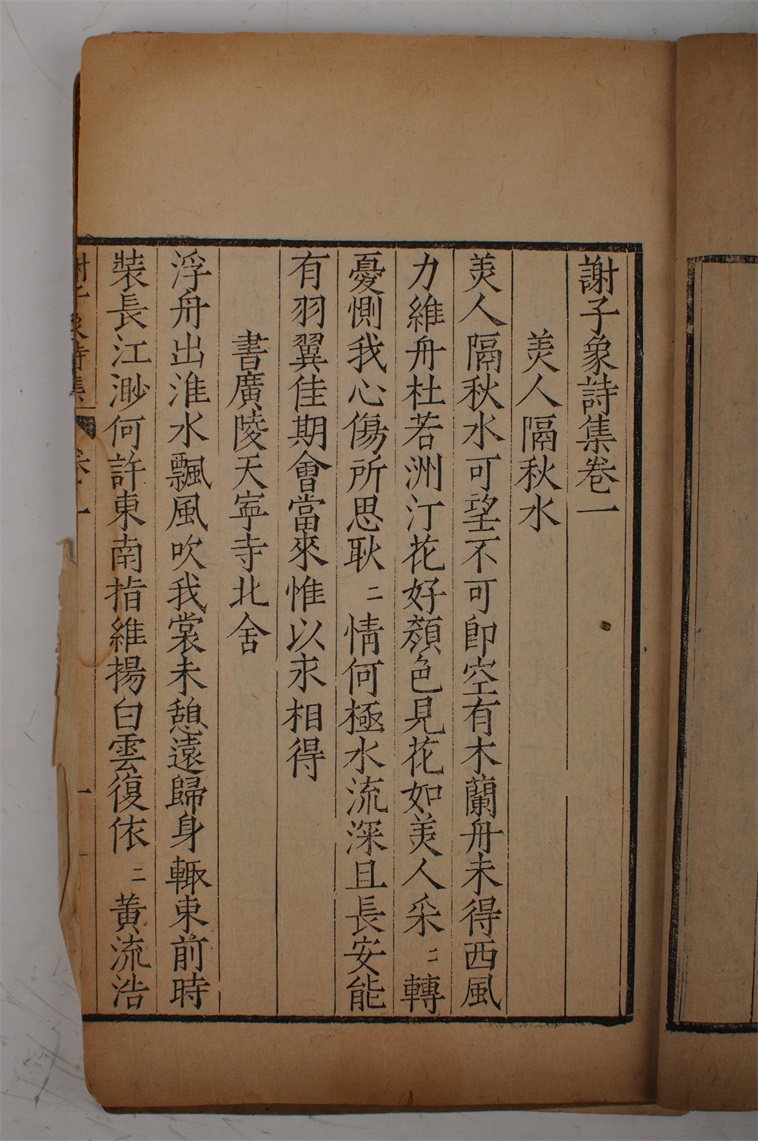 謝子象詩集卷一
美人隔秋水
美人隔秋水可望不可卽空有木蘭舟未得西風
力維舟杜若洲汀花好顏色見花如美人采〻轉
憂惻我心傷所思耿〻情何極水流深且長安能
有羽翼佳期會當來惟以求相得
書廣陵天寧寺北舍
浮舟出淮水飄風吹我裳未憩遠歸身輙束前時
裝長江渺何許東南指維揚白雲復依〻黃流浩
謝子象詩集 卷一 一